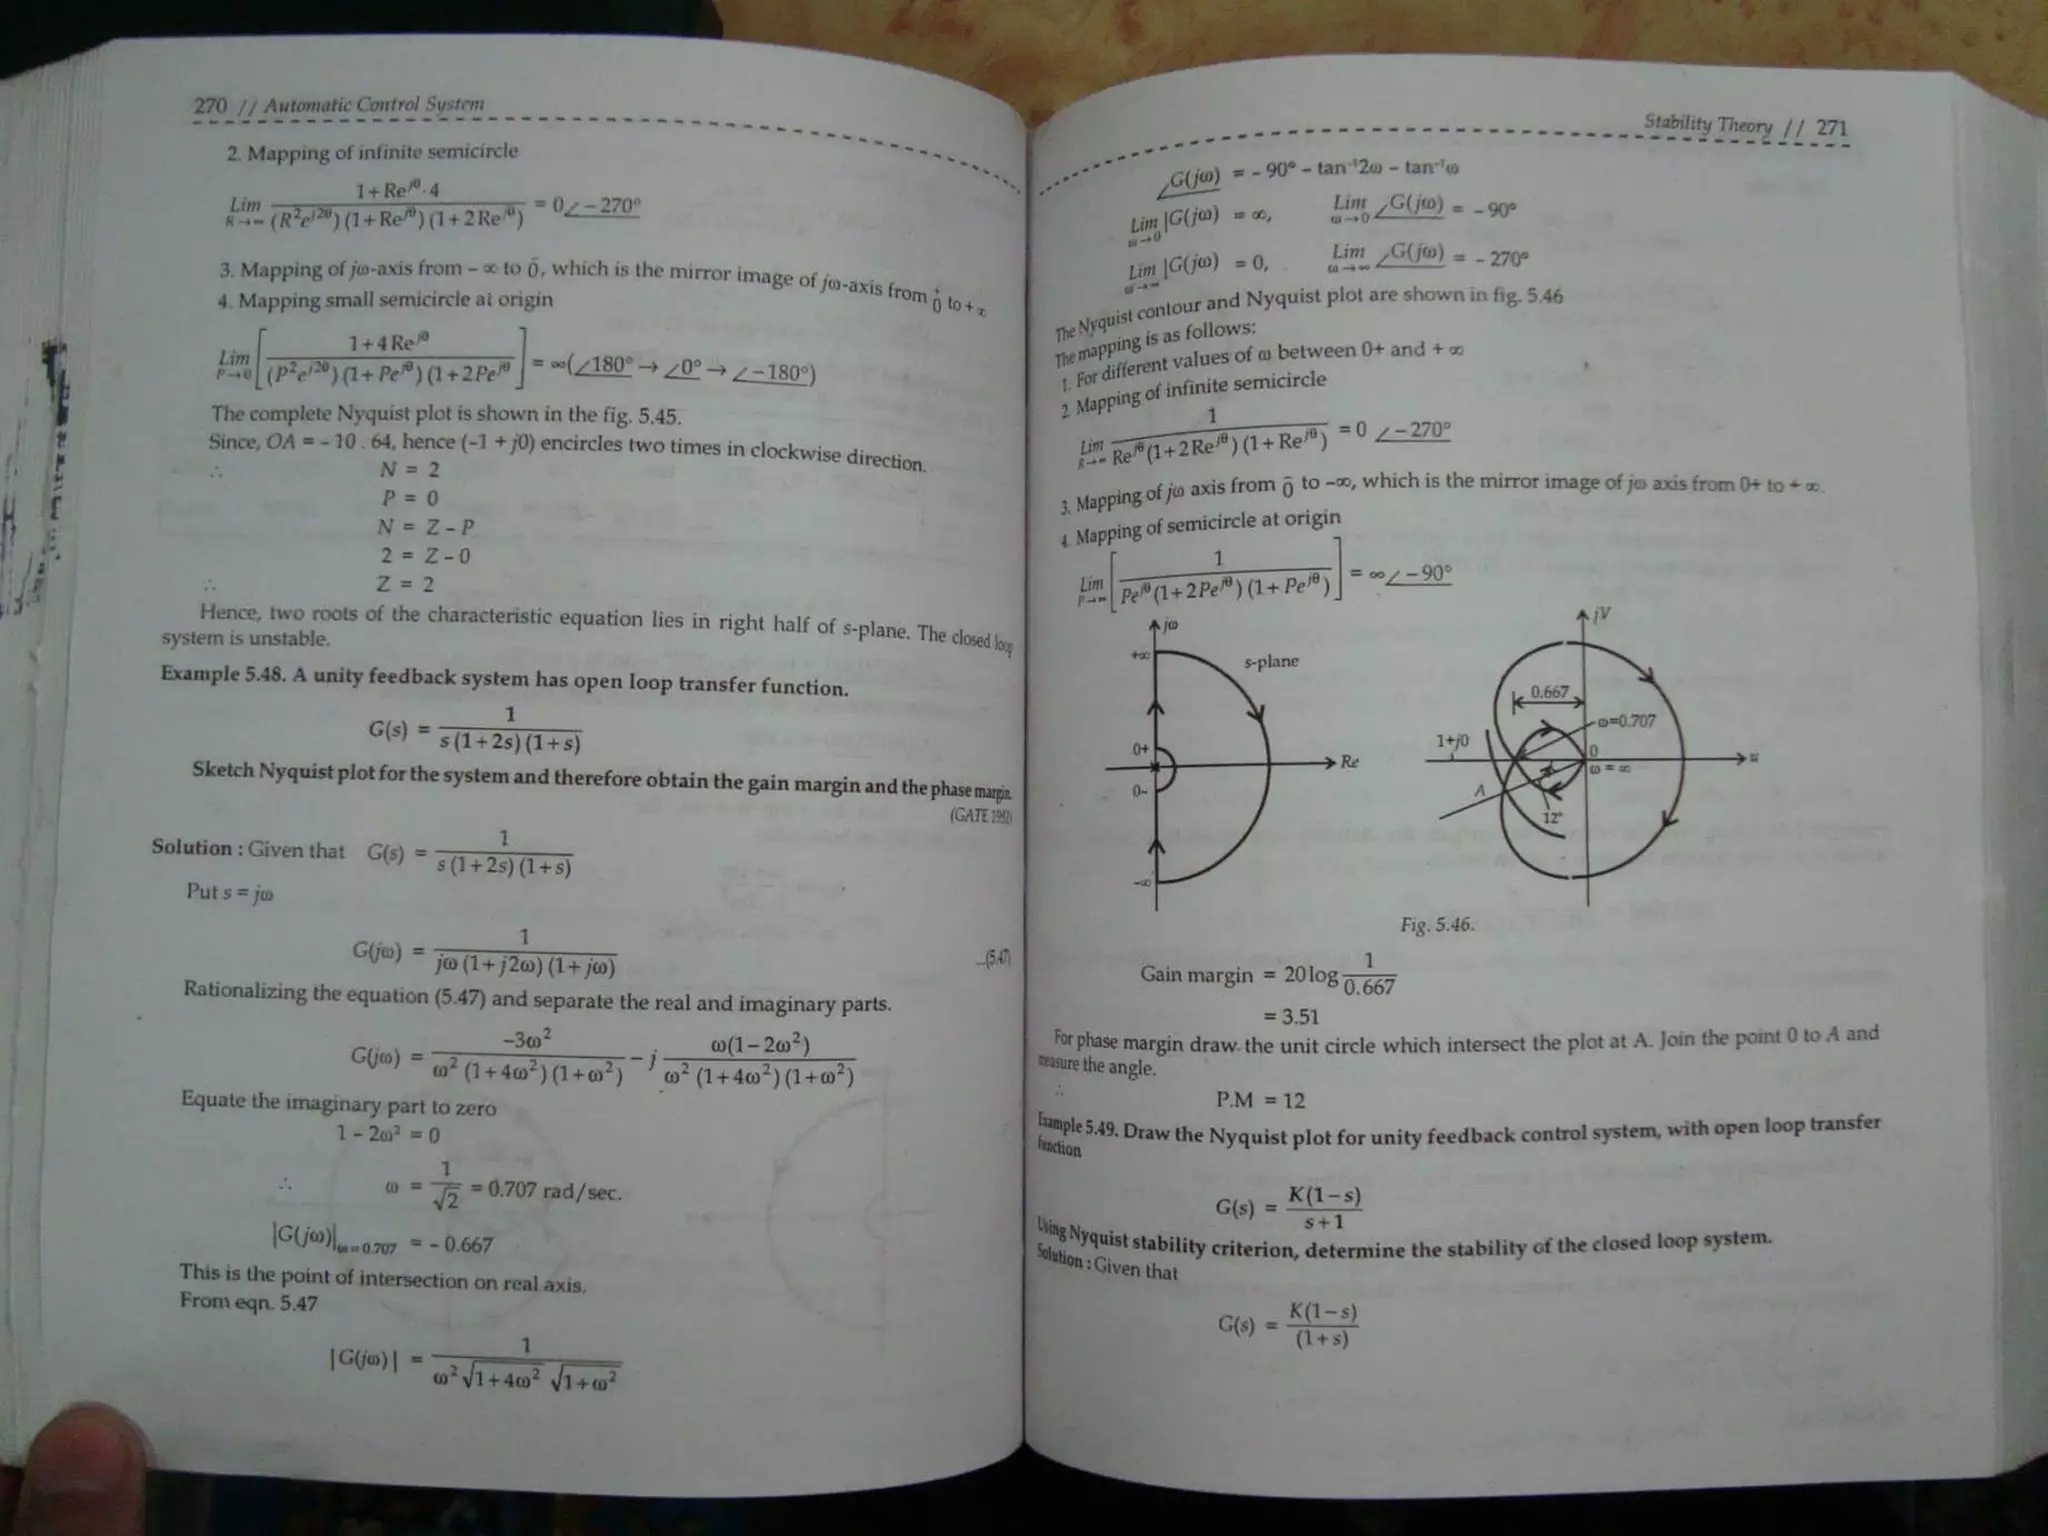 270 // Automatic Control System
2. Mapping of infinite semicircle
Lim R→∞ (1+Re^jθ·4) / ((R²e^j2θ)(1+Re^jθ)(1+2Re^jθ)) = 0∠−270°
3. Mapping of jω-axis from – ∞ to 0̄, which is the mirror image of jω-axis from 0⁺ to + ∞
4. Mapping small semicircle at origin
Lim P→0 [(1+4Re^jθ) / ((P²e^j2θ)(1+Pe^jθ)(1+2Pe^jθ)] = ∞(∠180° → ∠0° → ∠−180°)
The complete Nyquist plot is shown in the fig. 5.45.
Since, OA = – 10 . 64, hence (–1 + j0) encircles two times in clockwise direction.
∴ N = 2
P = 0
N = Z – P
2 = Z – 0
∴ Z = 2
Hence, two roots of the characteristic equation lies in right half of s-plane. The closed loop
system is unstable.
Example 5.48. A unity feedback system has open loop transfer function.
G(s) = 1 / (s (1+2s) (1+s))
Sketch Nyquist plot for the system and therefore obtain the gain margin and the phase margin.
(GATE
Solution : Given that G(s) = 1 / (s (1+2s) (1+s))
Put s = jω
G(jω) = 1 / (jω (1+j2ω) (1+jω)) ...(5.47)
Rationalizing the equation (5.47) and separate the real and imaginary parts.
G(jω) = −3ω² / (ω² (1+4ω²)(1+ω²)) − j ω(1−2ω²) / (ω² (1+4ω²)(1+ω²))
Equate the imaginary part to zero
1 – 2ω² = 0
∴ ω = 1/√2 = 0.707 rad/sec.
|G(jω)|ω=0.707 = – 0.667
This is the point of intersection on real axis.
From eqn. 5.47
|G(jω)| = 1 / (ω²√(1+4ω²) √(1+ω²))
Stability Theory // 271
∠G(jω) = – 90° – tan⁻¹2ω – tan⁻¹ω
Lim ω→0 |G(jω) = ∞, Lim ω→0 ∠G(jω) = – 90°
Lim ω→∞ |G(jω) = 0, Lim ω→∞ ∠G(jω) = – 270°
The Nyquist contour and Nyquist plot are shown in fig. 5.46
The mapping is as follows:
1. For different values of ω between 0+ and + ∞
2. Mapping of infinite semicircle
Lim R→∞ 1 / (Re^jθ(1+2Re^jθ)(1+Re^jθ)) = 0 ∠−270°
3. Mapping of jω axis from 0̄ to –∞, which is the mirror image of jω axis from 0+ to + ∞.
4. Mapping of semicircle at origin
Lim P→∞ [1 / (Pe^jθ(1+2Pe^jθ)(1+Pe^jθ)] = ∞∠−90°
jω
+∞
s-plane
0+
Re
0–
–∞
jV
0.667
ω=0.707
1+j0
0
ω = ∞
u
A
12°
Fig. 5.46.
Gain margin = 20 log 1/0.667
= 3.51
For phase margin draw the unit circle which intersect the plot at A. Join the point 0 to A and
measure the angle.
∴ P.M = 12
Example 5.49. Draw the Nyquist plot for unity feedback control system, with open loop transfer
function
G(s) = K(1−s) / (s+1)
Using Nyquist stability criterion, determine the stability of the closed loop system.
Solution : Given that
G(s) = K(1−s) / (1+s)